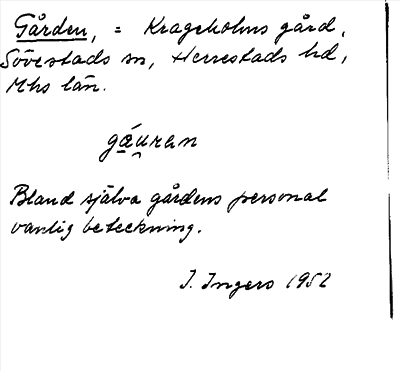 Gården, = Krageholms gård,
Sövestads sn, Herrestads hd,
Mhs län.
gáu̯ran
Bland själva gårdens personal
vanlig beteckning.
I. Ingers 1952